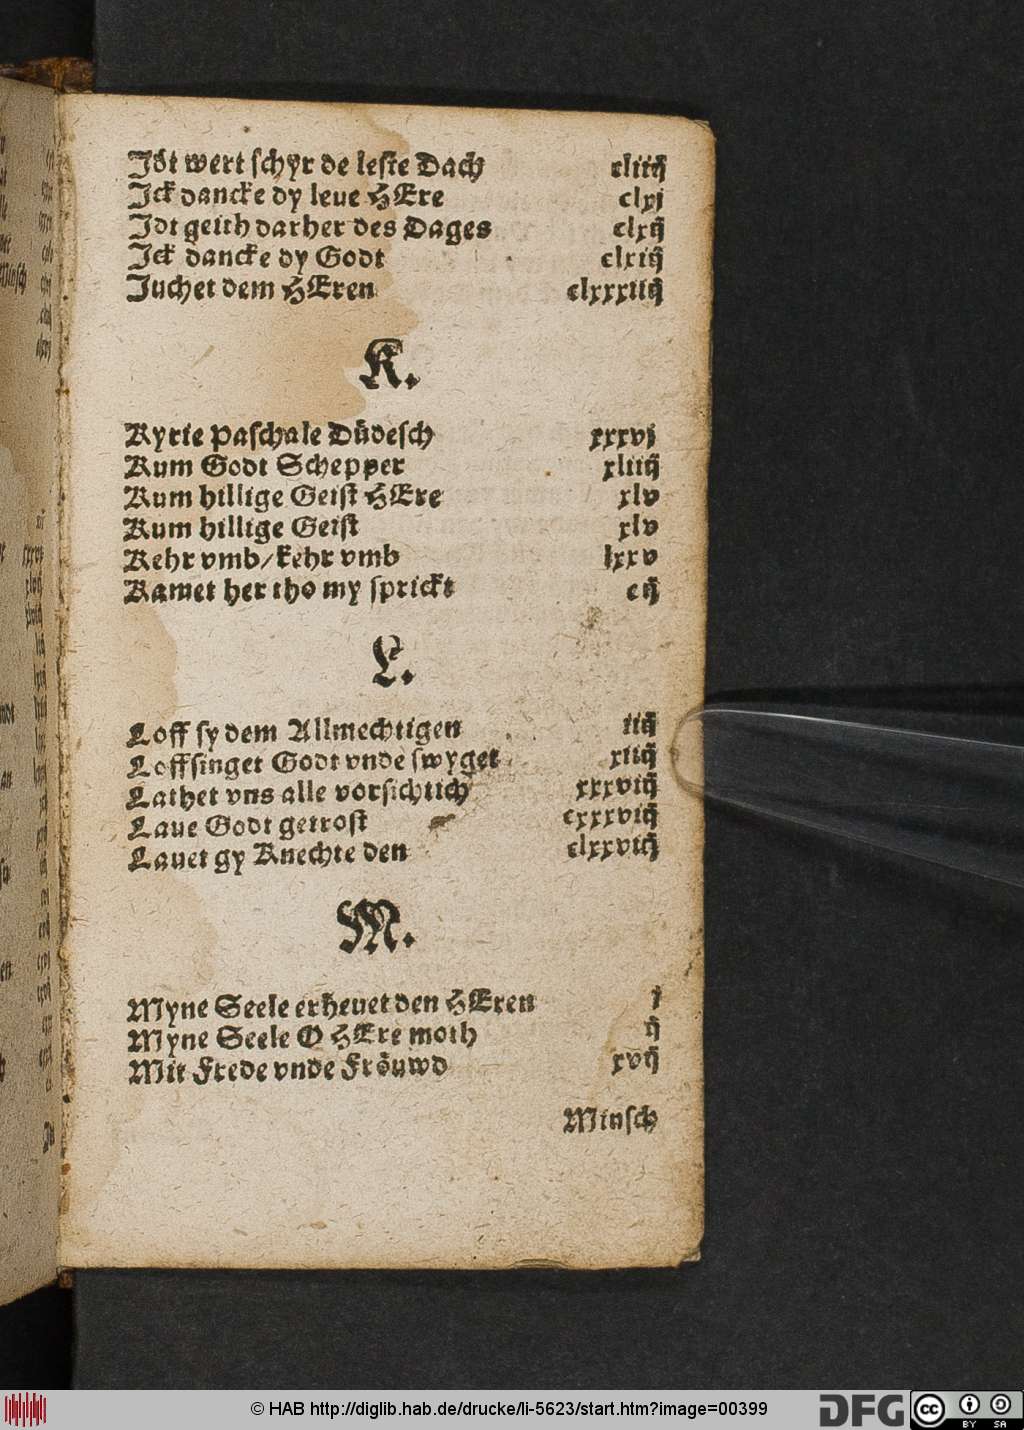 Jdt wert schyr de leste Dach cliiij
Jck dancke dy leue HEre clxj
Jdt geith darher des Dages clxij
Jck dancke dy Godt clxiij
Juchet dem HEren clxxxiiij
K.
Kyrie Paschale Düdesch xxxvj
Kum Godt Schepper xliiij
Kum hillige Geist HEre xlv
Kum hillige Geist xlv
Kehr vmb/kehr vmb lxxv
Kamet her tho my sprickt cij
L.
Loff sy dem Allmechtigen iiij
Loffsinget Godt vnde swyget xiiij
Lathet vns alle vorsichtich xxxviij
Laue Godt getrost cxxxviij
Lauet gy Knechte den clxxviij
M.
Myne Seele erheuet den HEren j
Myne Seele O HEre moth ij
Mit Frede vnde Fröuwd xvij
Minsch
© HAB http://diglib.hab.de/drucke/li-5623/start.htm?image=00399
DFG
cc BY SA